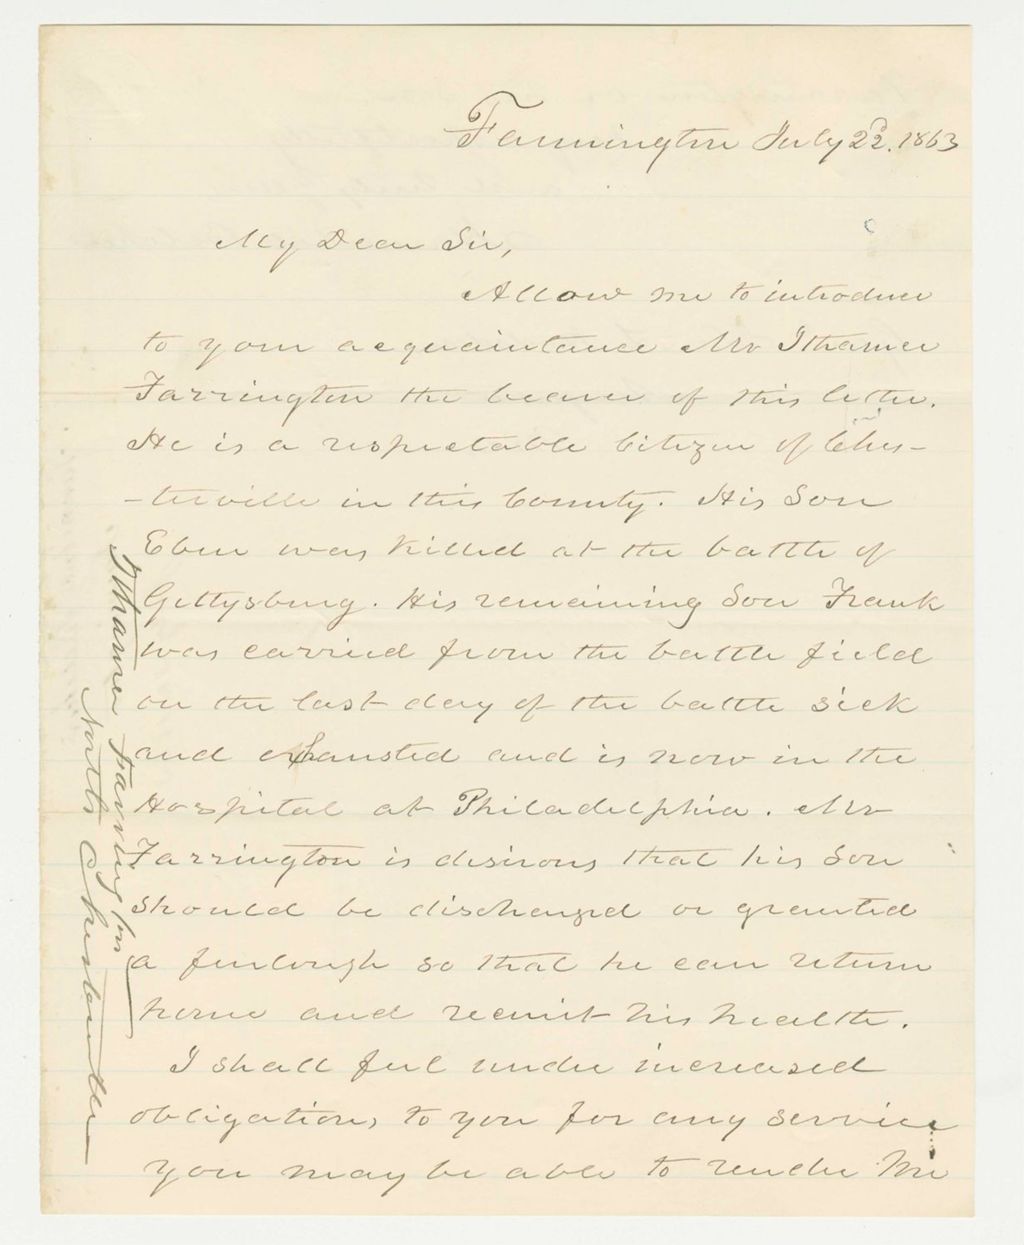 Farmington July 22d. 1863
My Dear Sir,
Allow me to introduce
to your acquaintance Mr Ithamer
Farrington the bearer of this letter.
He is a respectable Citizen of Ches-
-terville in this County. His Son
Eben was killed at the battle of
Gettysburg. His remaining Son Frank
was carried from the battle field
on the last day of the battle sick
and exhausted and is now in the
Hospital at Philadelphia. Mr
Farrington is desirous that his Son
should be discharged or granted
a furlough so that he can return
home and recruit his health.
I shall feel under increased
obligations to you for any service
you may be able to render Mr
Ithamer Farrington
North Chesterville